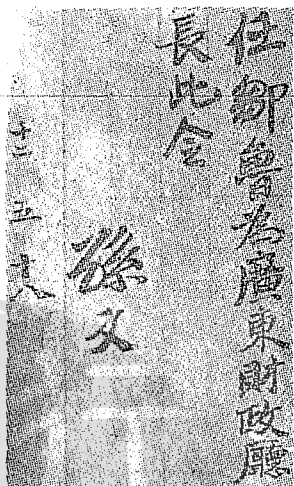 任鄒魯為廣東財政廳
長此令
孫文
五